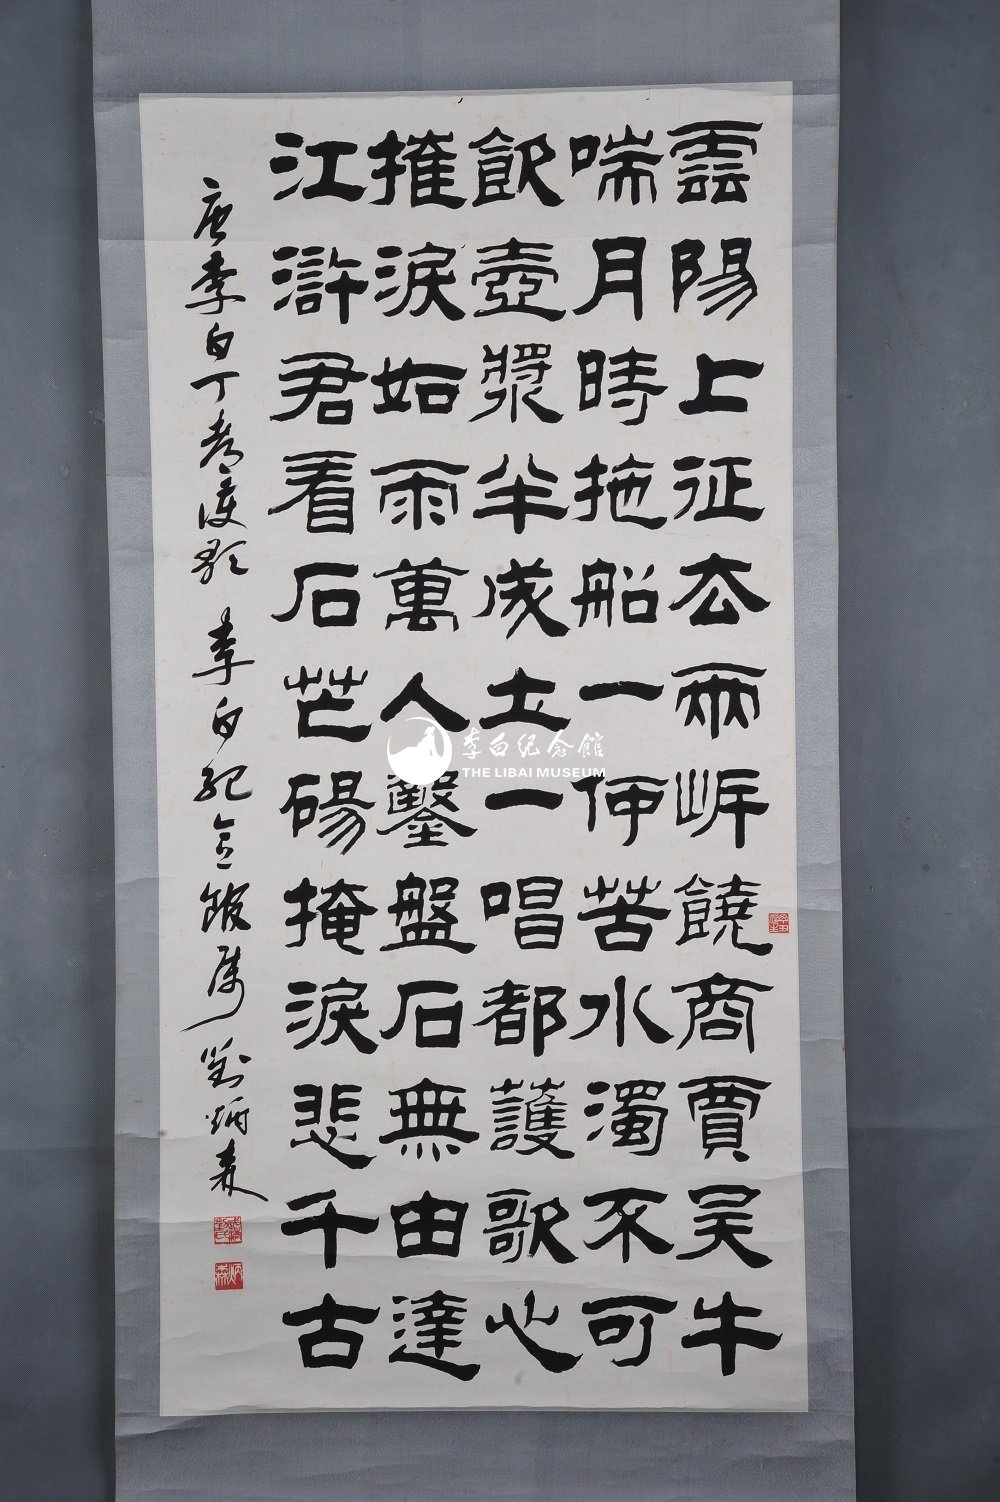 雲陽上征去兩岸饒商賈吳牛
喘月時拖船一何苦水濁不可
飲壺漿半成土一唱都護歌心
摧淚如雨萬人鑿盤石無由達
江滸君看石芒碭掩淚悲千古
唐李白丁都護歌 李白紀念館屬 劉炳森
炳森
李白纪念館
THE LIBAI MUSEUM